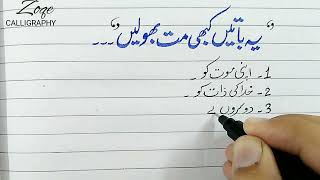 Zoqe
CALLIGRAPHY
یہ باتیں کبھی مت بھولیں ۔۔۔
1۔ اپنی موت کو ۔
2۔ خدا کی ذات کو ۔
3۔ دوسروں